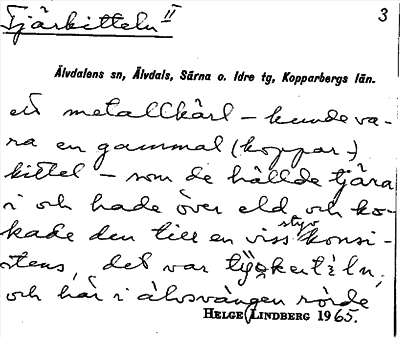 Tjärkitteln II
3
Älvdalens sn, Älvdals, Särna o. Idre tg, Kopparbergs län.
ett metallkärl – kunde va-
ra en gammal (koppar-)
kittel – som de hällde tjära
i och hade över eld och ko-
kade den till en viss styv konsi-
stens, det var
och här i älvsvängen rörde
HELGE LINDBERG 1965.